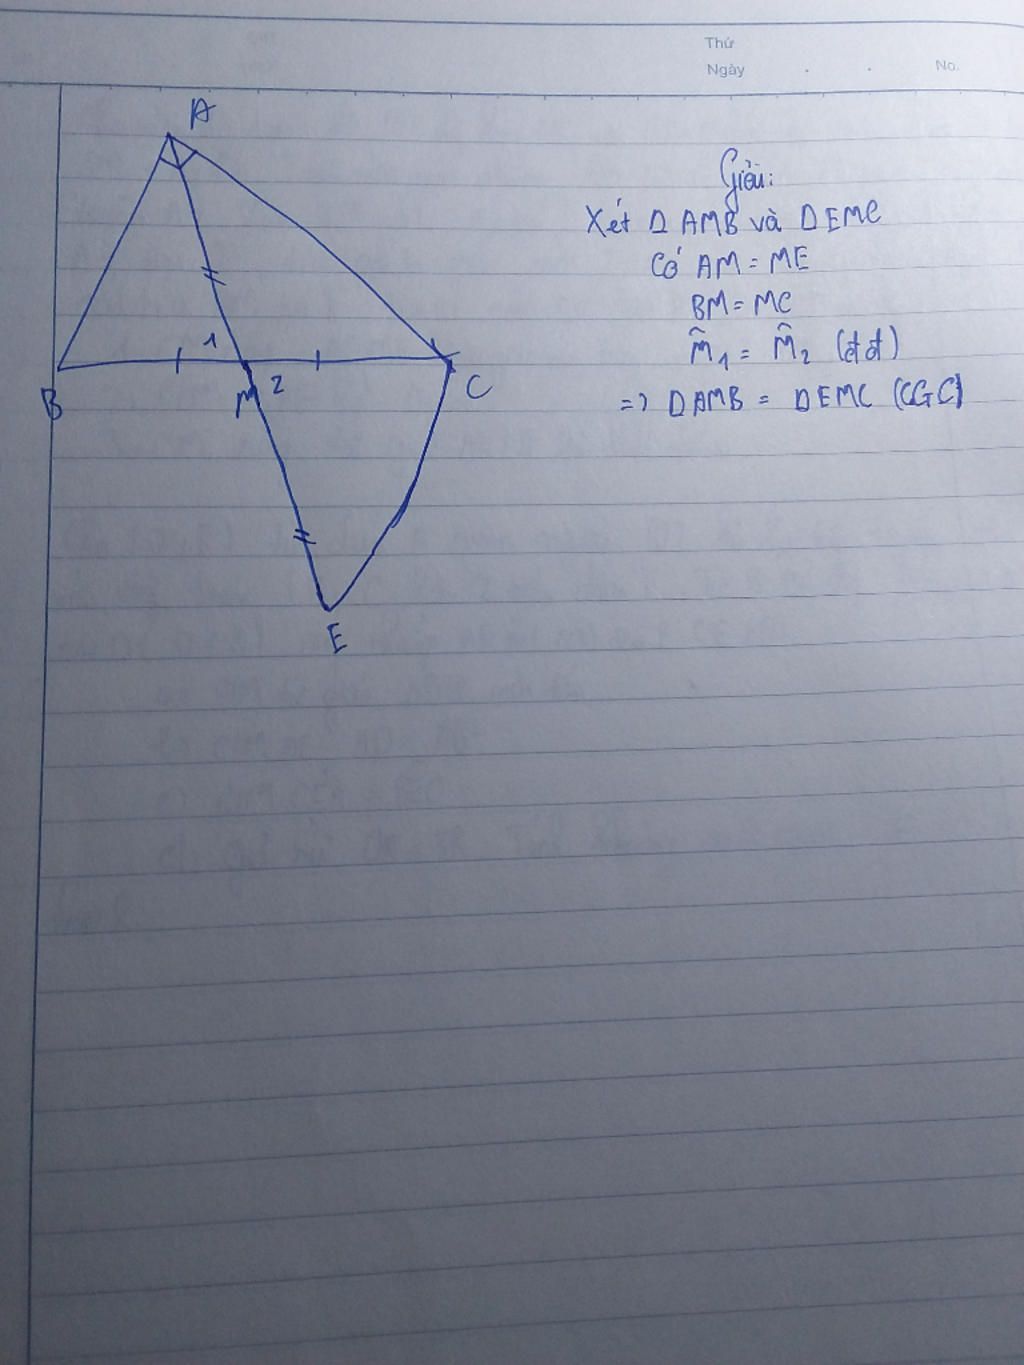 Thứ
Ngày . . No.
A
Giải:
Xét Δ AMB và Δ EMC
Có AM = ME
BM = MC
M̂1 = M̂2 (đđ)
=> Δ AMB = Δ EMC (CGC)
1
B
M 2
C
E